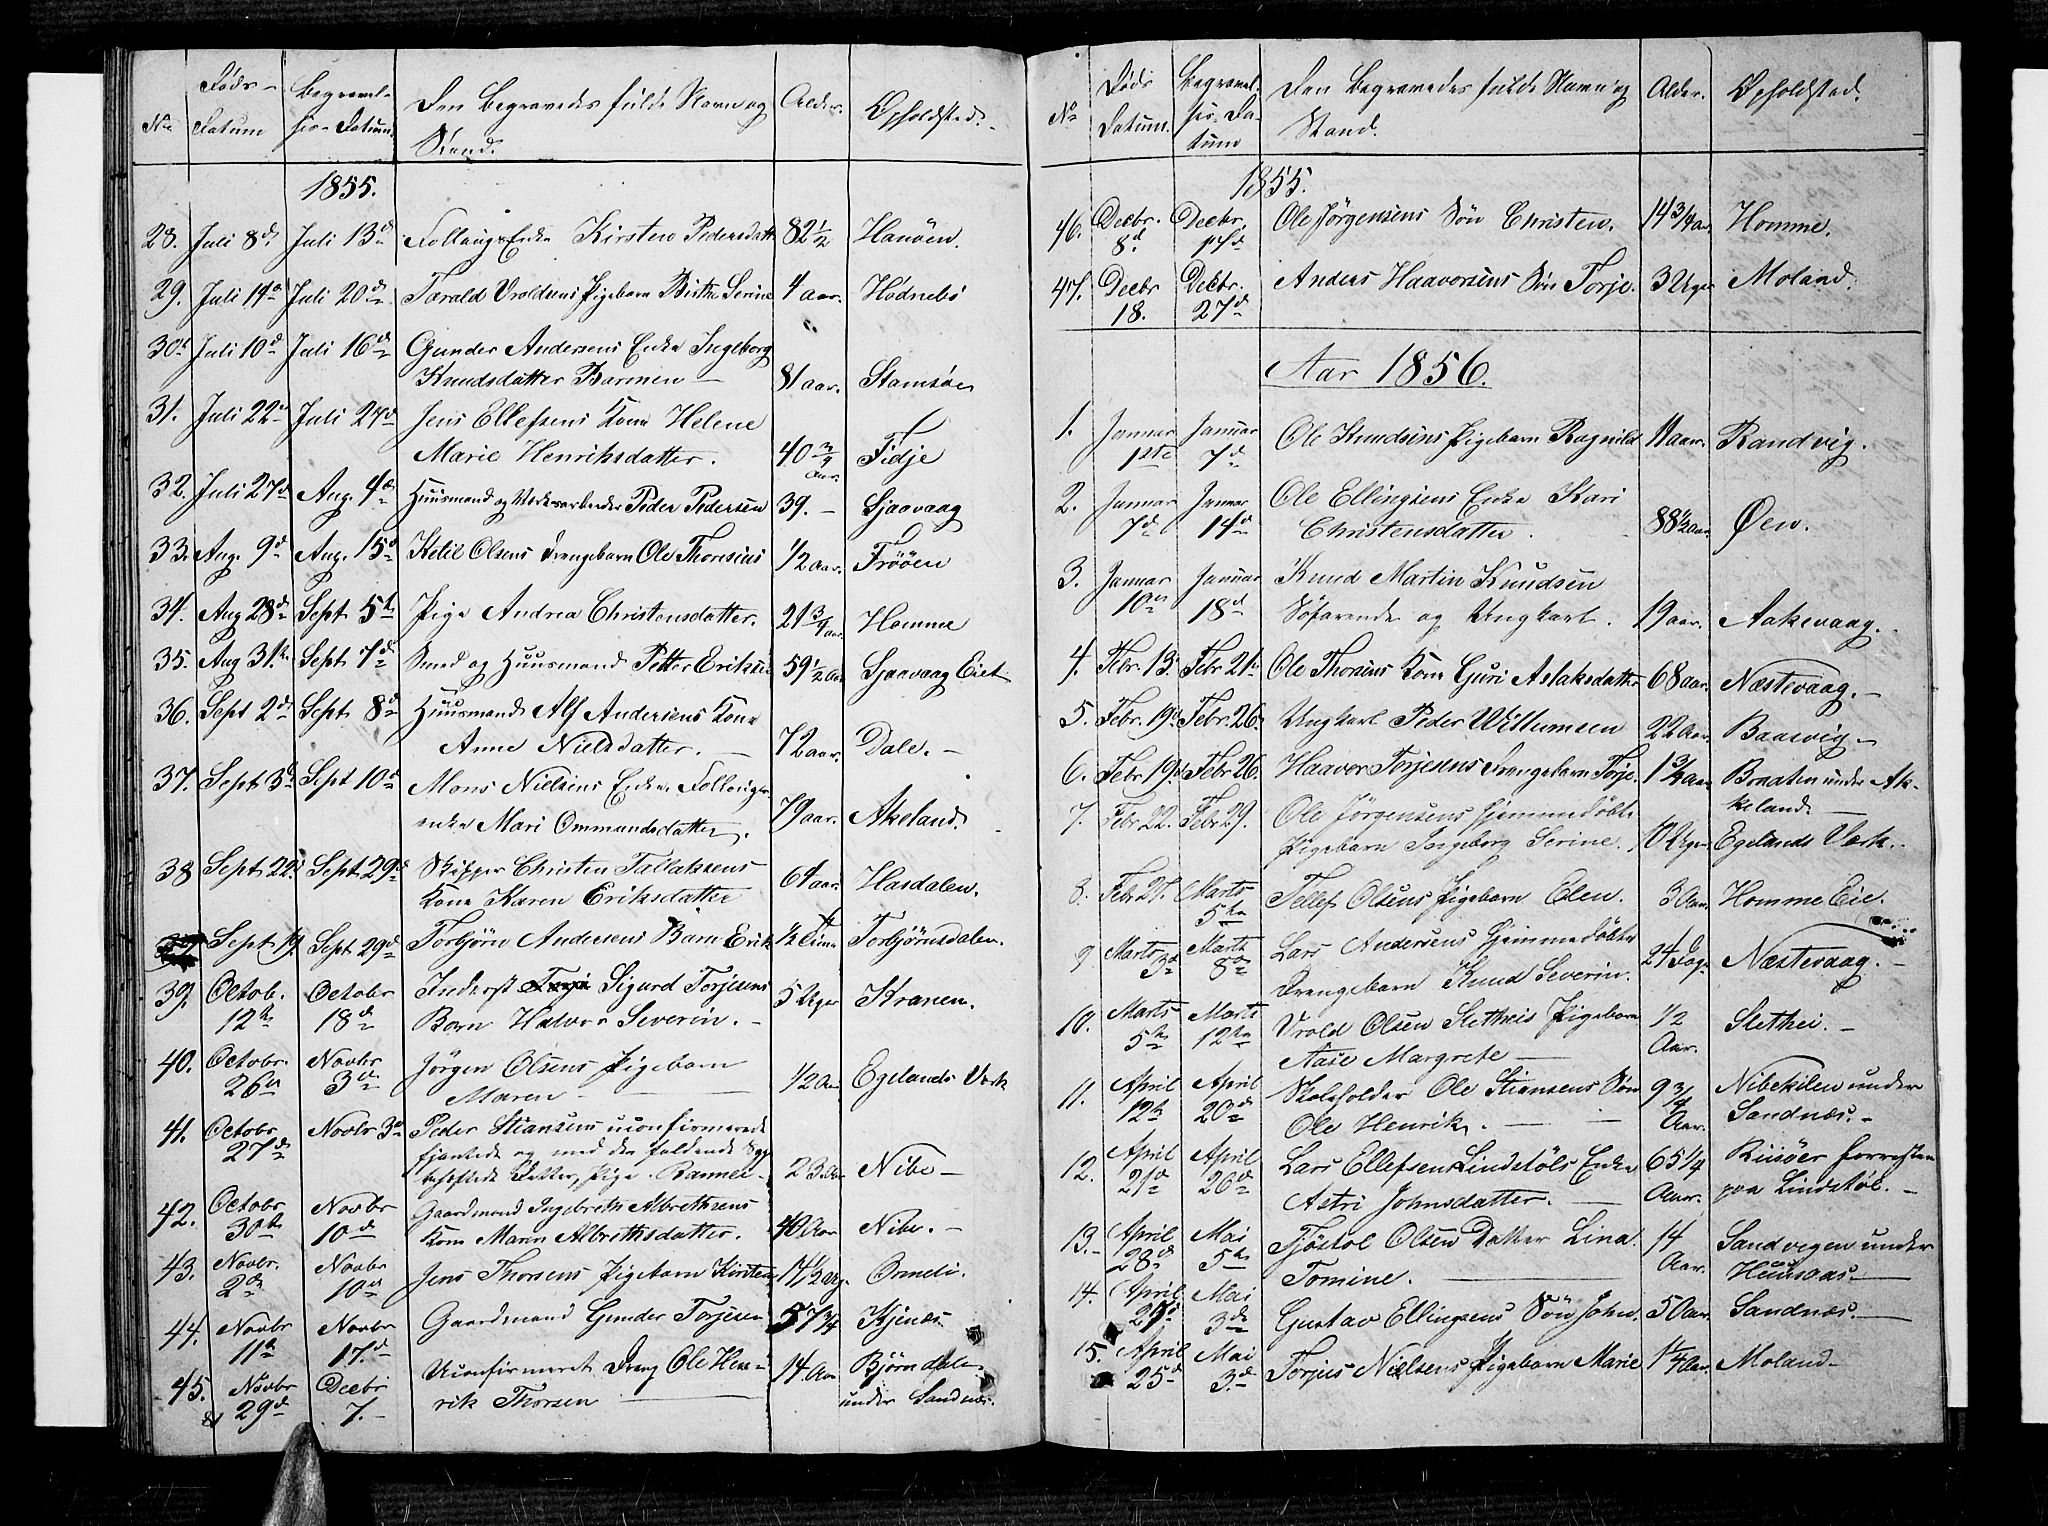 No Døds- Datum Begravel- ses-Datum. Den Begravedes fulde Navn og Stand. Alder. Opholdsted.
1855.
28. Juli 8de Juli 13de Follaugs Enke Kirsten Pedersdatt. 82 1/2 Hanöen.
29. Juli 14de Juli 20de Tarald Vroldsens Pigebarn Birthe Serine 4 aar. Hödnebö
30. Juli 10de Juli 16de Gunder Andersens Enke Ingeborg
Knudsdatter Barmen — 81 aar. Stamsöe
31. Juli 22de Juli 27de Jens Ellefsens Kone Helene
Marie Henriksdatter. 40 3/4 Aar. Fidje
32. Juli 27de Aug. 4de Huusmand og Værksarbeider Peder Pedersen 39. — Sjaavaag
33. Aug. 9de Aug. 15de Ketil Olsens Drengebarn Ole Thonesius 1/2 Aar. Frööen
34. Aug 28de Sept 5te Pige Andrea Christensdatter. 21 3/4 aar. Homme
35. Aug 31te Sept. 7de Smed og Huusmand Petter Eriksen 59 1/2 Aar Sjaavaag Eiet
36. Sept 2de Sept. 8de Huusmand Alf Andersens Kone
Anne Nielsdatter. — 72 aar. Dale. —
37. Sept 3de Sept 10de Mons Nielsens Enke Follaugs-
enke Mari Ommundsdatter. 79 aar. Akeland.
38 Sept 22. Sept. 29de Skipper Christen Tallaksens
Kone Karen Eriksdatter 64 aar. Hasdalen.
Sept 19. Sept. 29de Torbjörn Andersens Barn Erik 1/2 Time Torbjörnsdalen.
39. Octob. 12te October 18de Inderst Sigurd Torjesens
Barn Halvor Severin. — 5 Uger Kranen.
40. Octobr. 26de Novbr 3de Jörgen Olsens Pigebarn
Maren — 1/2 Aar Egelands Værk
41. Octobr 27de Novbr 3de Peder Stiansens uconfirmerede
fjantede og med den faldende Syge
behæftede Datter, Pige Rannei 23 Aar Nibe —
42. Octobr 30te Novbr 10de Gaardmand Ingebreth Albrethsens
Kone Maren Albrethsdatter. 40 Aar Nibe. —
43. Novbr. 2de Novbr 10de Jens Thorsens Pigebarn Kirsten 14 1/2 Ug. Ormeli.
44. Novbr 11te Novbr 17de Gaardmand Gunder Torjesen 57 3/4 Kjenæs
45. Novbr 29de Decbr 7. — Uconfirmeret Dreng Ole Hen-
rik Thorsen — 14 Aar Björndalen
under Sandnæs.
No Døds Datum. Begravel- ses-Da- tum Den Begravedes fulde Navn og Stand. Alder. Opholdsted.
1855.
46. Decbr. 8de Decbr. 14de Ole Jörgensens Sön Christen. 14 3/4 Aar Homme.
47. Decbr 18. Decbr. 27de Anders Haavorsens Sön Torje. 3 Uger Moland.
Aar 1856.
1. Januar 1ste Januar 7de Ole Knudsens Pigebarn Ragnild 11 aar. Randvig.
2. Januar 7de Januar 14de Ole Ellingsens Enke Kari
Christensdatter. 88 1/2 aar. Øen.
3. Januar 10de Januar 18de Knud Martin Knudsen
Söfarende og Ungkarl. 19 aar. Aakevaag.
4. Febr. 13. Febr. 21de Ole Thorsens Kone Guri Aslaksdatter 68 aar. Næstevaag. —
5. Febr. 19de Febr. 26. Ungkarl Peder Wittumsen 22 Aar. Baasvig —
6. Febr 19de Febr 26. Haavor Torjesens Drengebarn Torje. 1 3/4 Aar Braaten under Ak-
keland. —
7. Febr 22. Febr 29. Ole Jörgensens hjemmedöbte
Pigebarn Ingeborg Serine. 10 Uger Egelands Værk. —
8. Febr 27. Marts 5te Tellef Olsens Pigebarn Elen. 3 Aar. Homme Eie.
9 Marts 3de Marts 8de Lars Andersens hjemmedöbte
Drengebarn Knud Severin. 24 Dage Næstevaag. —
10. Marts 5te Marts 12te Vrold Olsen Sletheis Pigebarn
Aase Margrete — 1/2 Aar. Slethei. —
11. April 12te April 20de Skoleholder Ole Stiansens Sön
Ole Henrik. — 9 3/4 Aar. Nibekilen under
Sandnæs. —
12. April 21de April 26de Lars Ellefsen Lindstöls Enke
Astri Johnsdatter. — 65 1/4 Aar. Riisöer forresten
paa Lindstöl. —
13. — April 28de Mai 5te Tjöstol Olsen Datter Lina
Tomine. — 14 Aar. Sandvegen under
Huusaas. —
14. April 27de Mai 3de Gustav Ellingsens Sön John. 5 Aar. Sandnæs. —
15. April 25de Mai 3de Torjus Nielsens Pigebarn Marie 1 1/4 Aar. Moland —